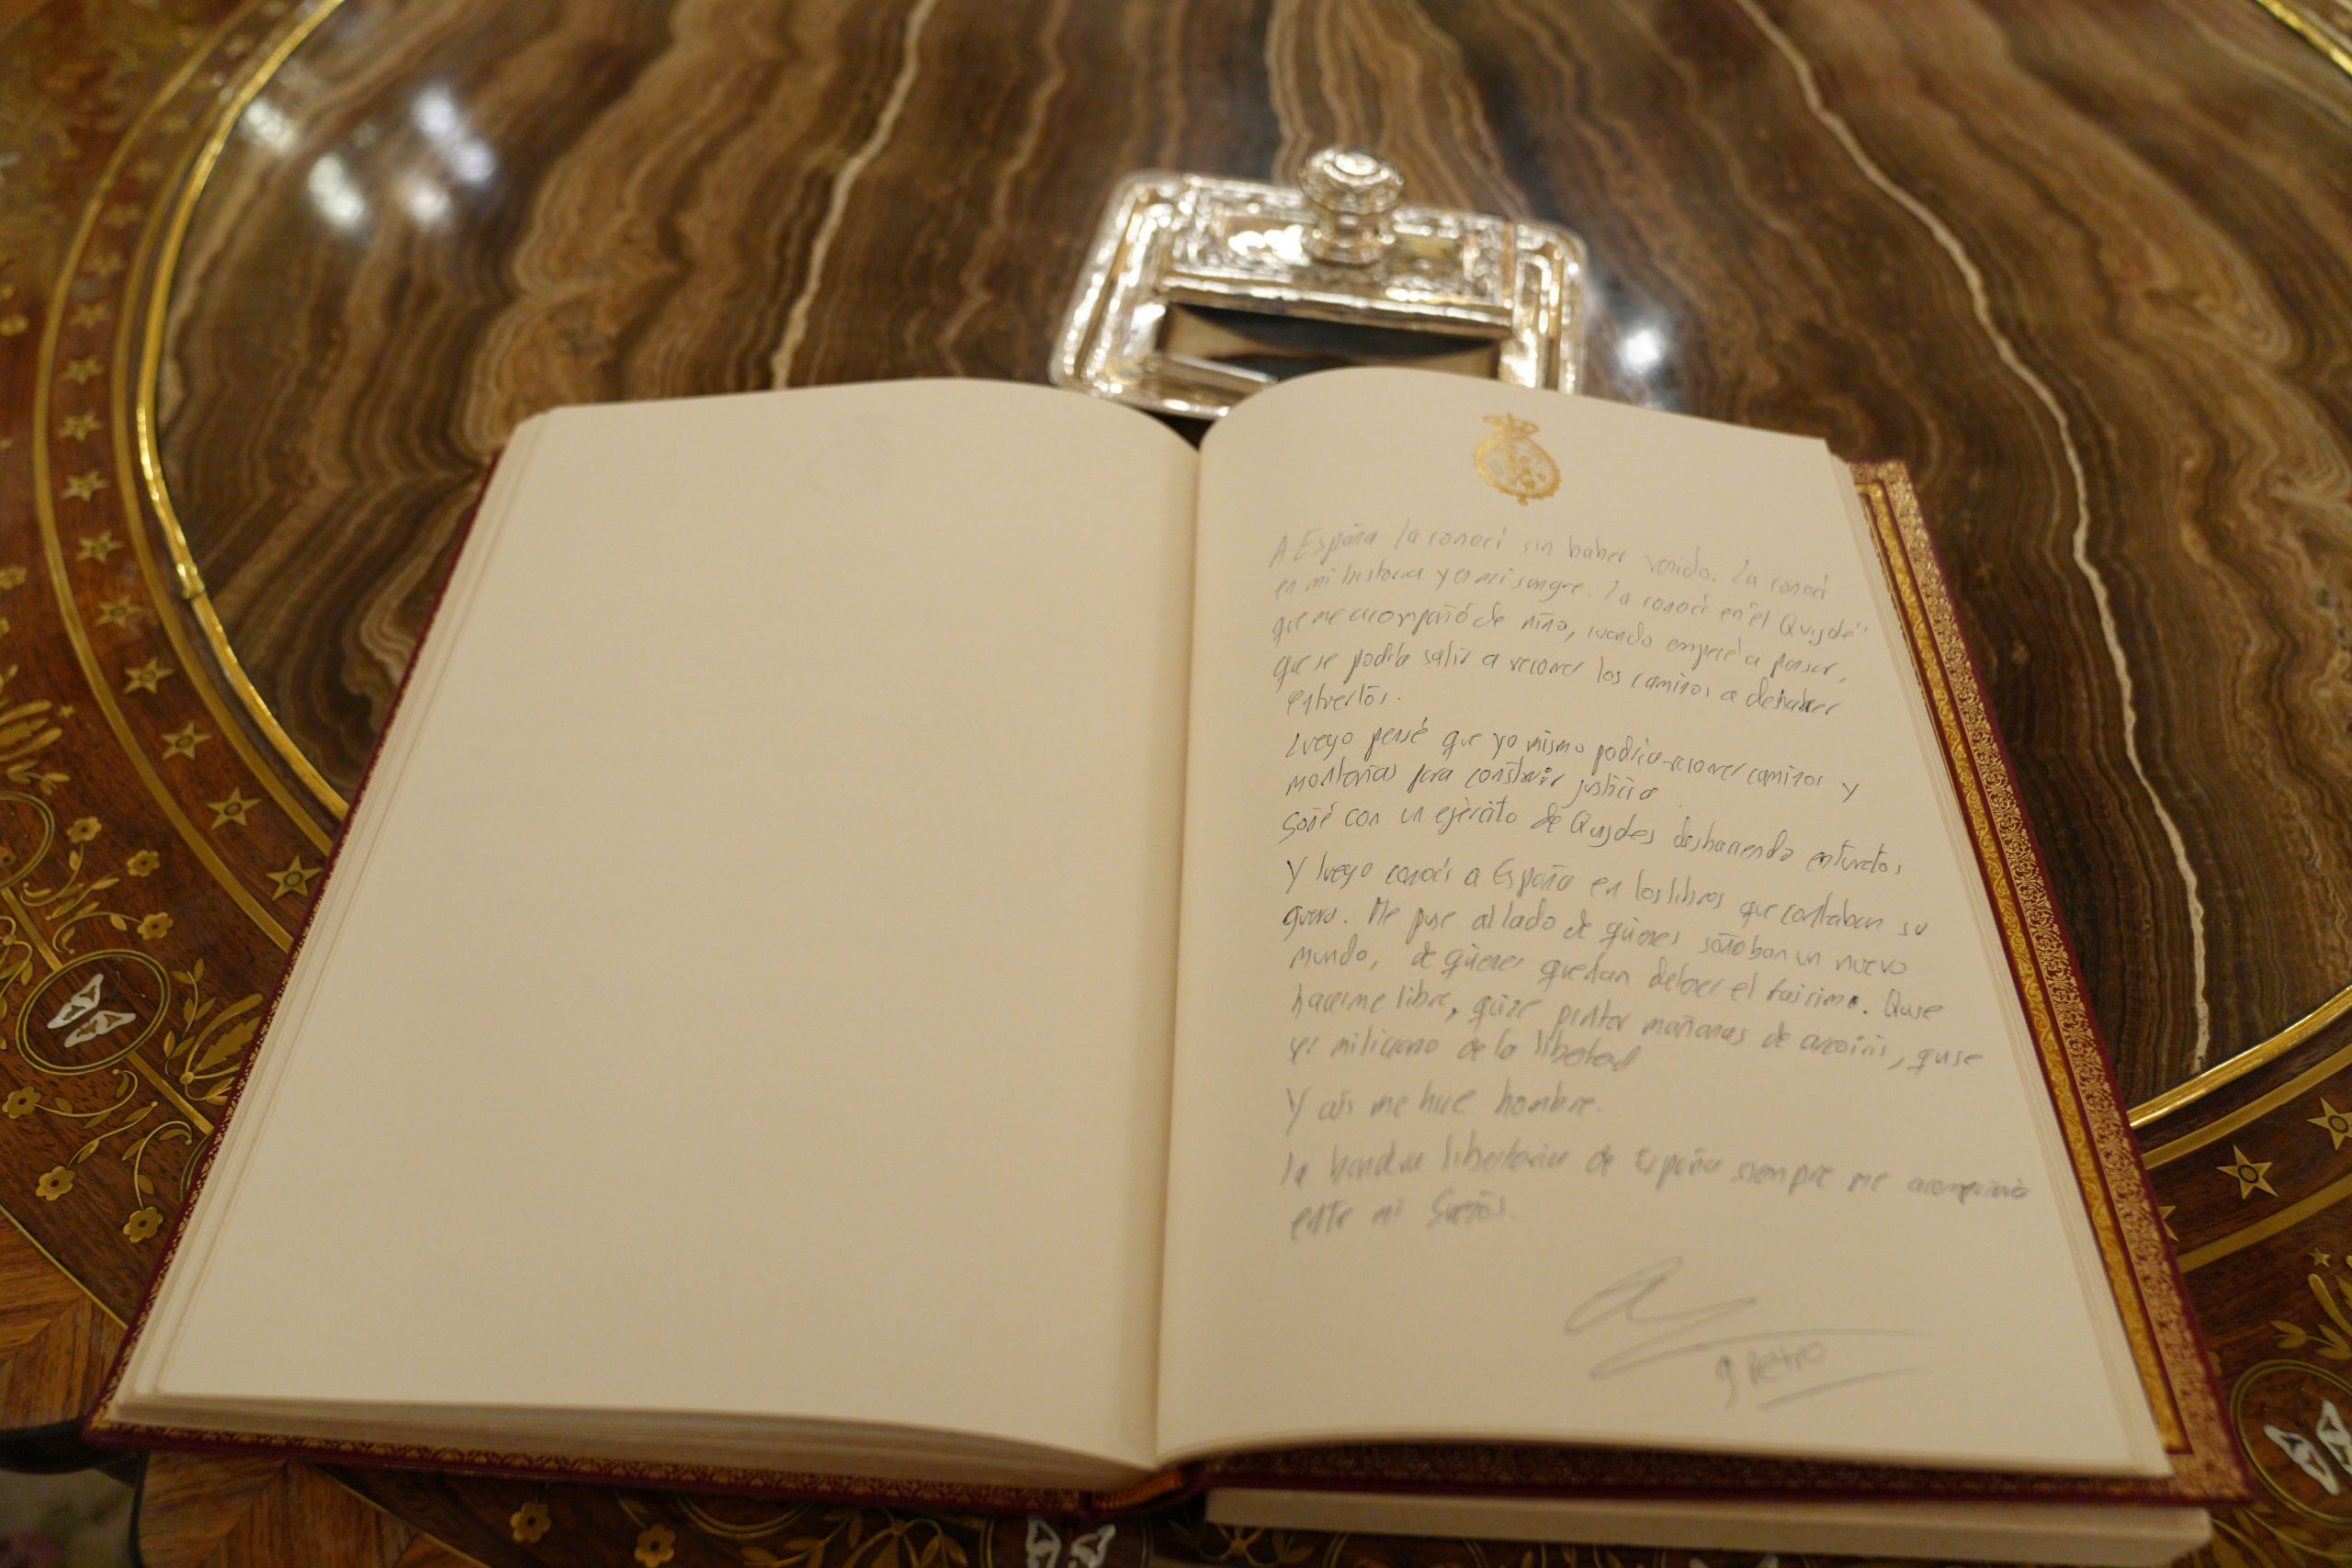 A España la conocí sin haber venido. La conocí
en mi historia y en mi sangre. La conocí en "el Quijote"
que me acompañó de niño, cuando empecé a pensar,
que se podía salir a recorrer los caminos a deshacer
entuertos.
Luego pensé que yo mismo podría recorrer caminos y
montañas para construir justicia
Soñé con un ejército de Quijotes deshaciendo entuertos
Y luego conocí a España en los libros que contaban su
guerra. Me puse al lado de quienes soñaban un nuevo
mundo, de quienes querían detener el fascismo. Quise
hacerme libre, quise pintar mañanas de arcoiris, quise
ser miliciano de la libertad
Y así me hice hombre.
La bandera libertaria de España siempre me acompañará
entre mi sueños.
g Petro